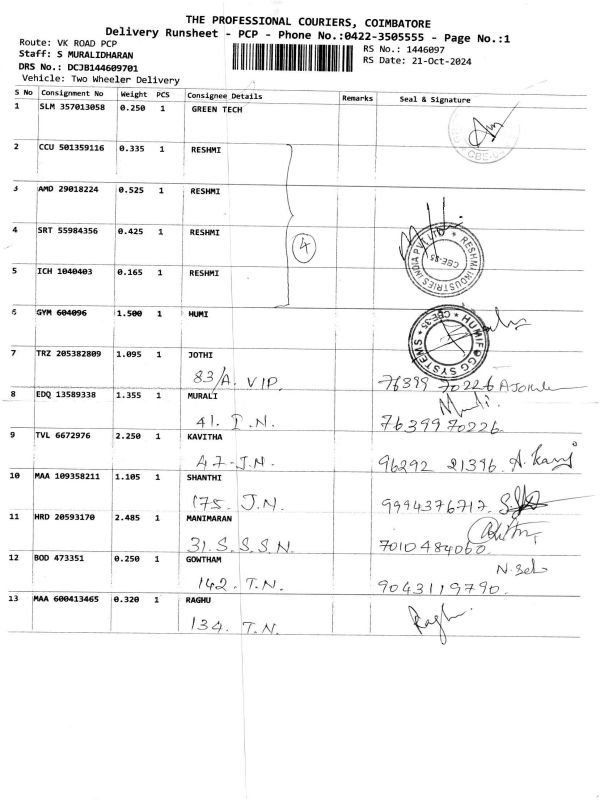 THE PROFESSIONAL COURIERS, COIMBATORE
Delivery Runsheet - PCP - Phone No.:0422-3505555 - Page No.:1
Route: VK ROAD PCP
Staff: S MURALIDHARAN
DRS No.: DCJB144609701
Vehicle: Two Wheeler Delivery
RS No.: 1446097
RS Date: 21-Oct-2024
S No Consignment No Weight PCS Consignee Details Remarks Seal & Signature
1 SLM 357013058 0.250 1 GREEN TECH
2 CCU 501359116 0.335 1 RESHMI
3 AMD 29018224 0.525 1 RESHMI
4 SRT 55984356 0.425 1 RESHMI
4
RESHMI INDUSTRIES INDIA PVT LTD CBE-35
5 ICH 1040403 0.165 1 RESHMI
6 GYM 604096 1.500 1 HUMI
HUMIFOGG SYSTEMS CBE-35
7 TRZ 205382809 1.095 1 JOTHI
83/A. VIP. 76399 70226
8 EDQ 13589338 1.355 1 MURALI
Murali
41. I.N. 7639970226.
9 TVL 6672976 2.250 1 KAVITHA
47-J.N. 96292 21396
10 MAA 109358211 1.105 1 SHANTHI
175. J.N. 9994376717
11 HRD 20593170 2.485 1 MANIMARAN
31. S.S.S.N. 7010484060
12 BOD 473351 0.250 1 GOWTHAM
142. T.N. 9043119790.
13 MAA 600413465 0.320 1 RAGHU
134. T.N. Raghu